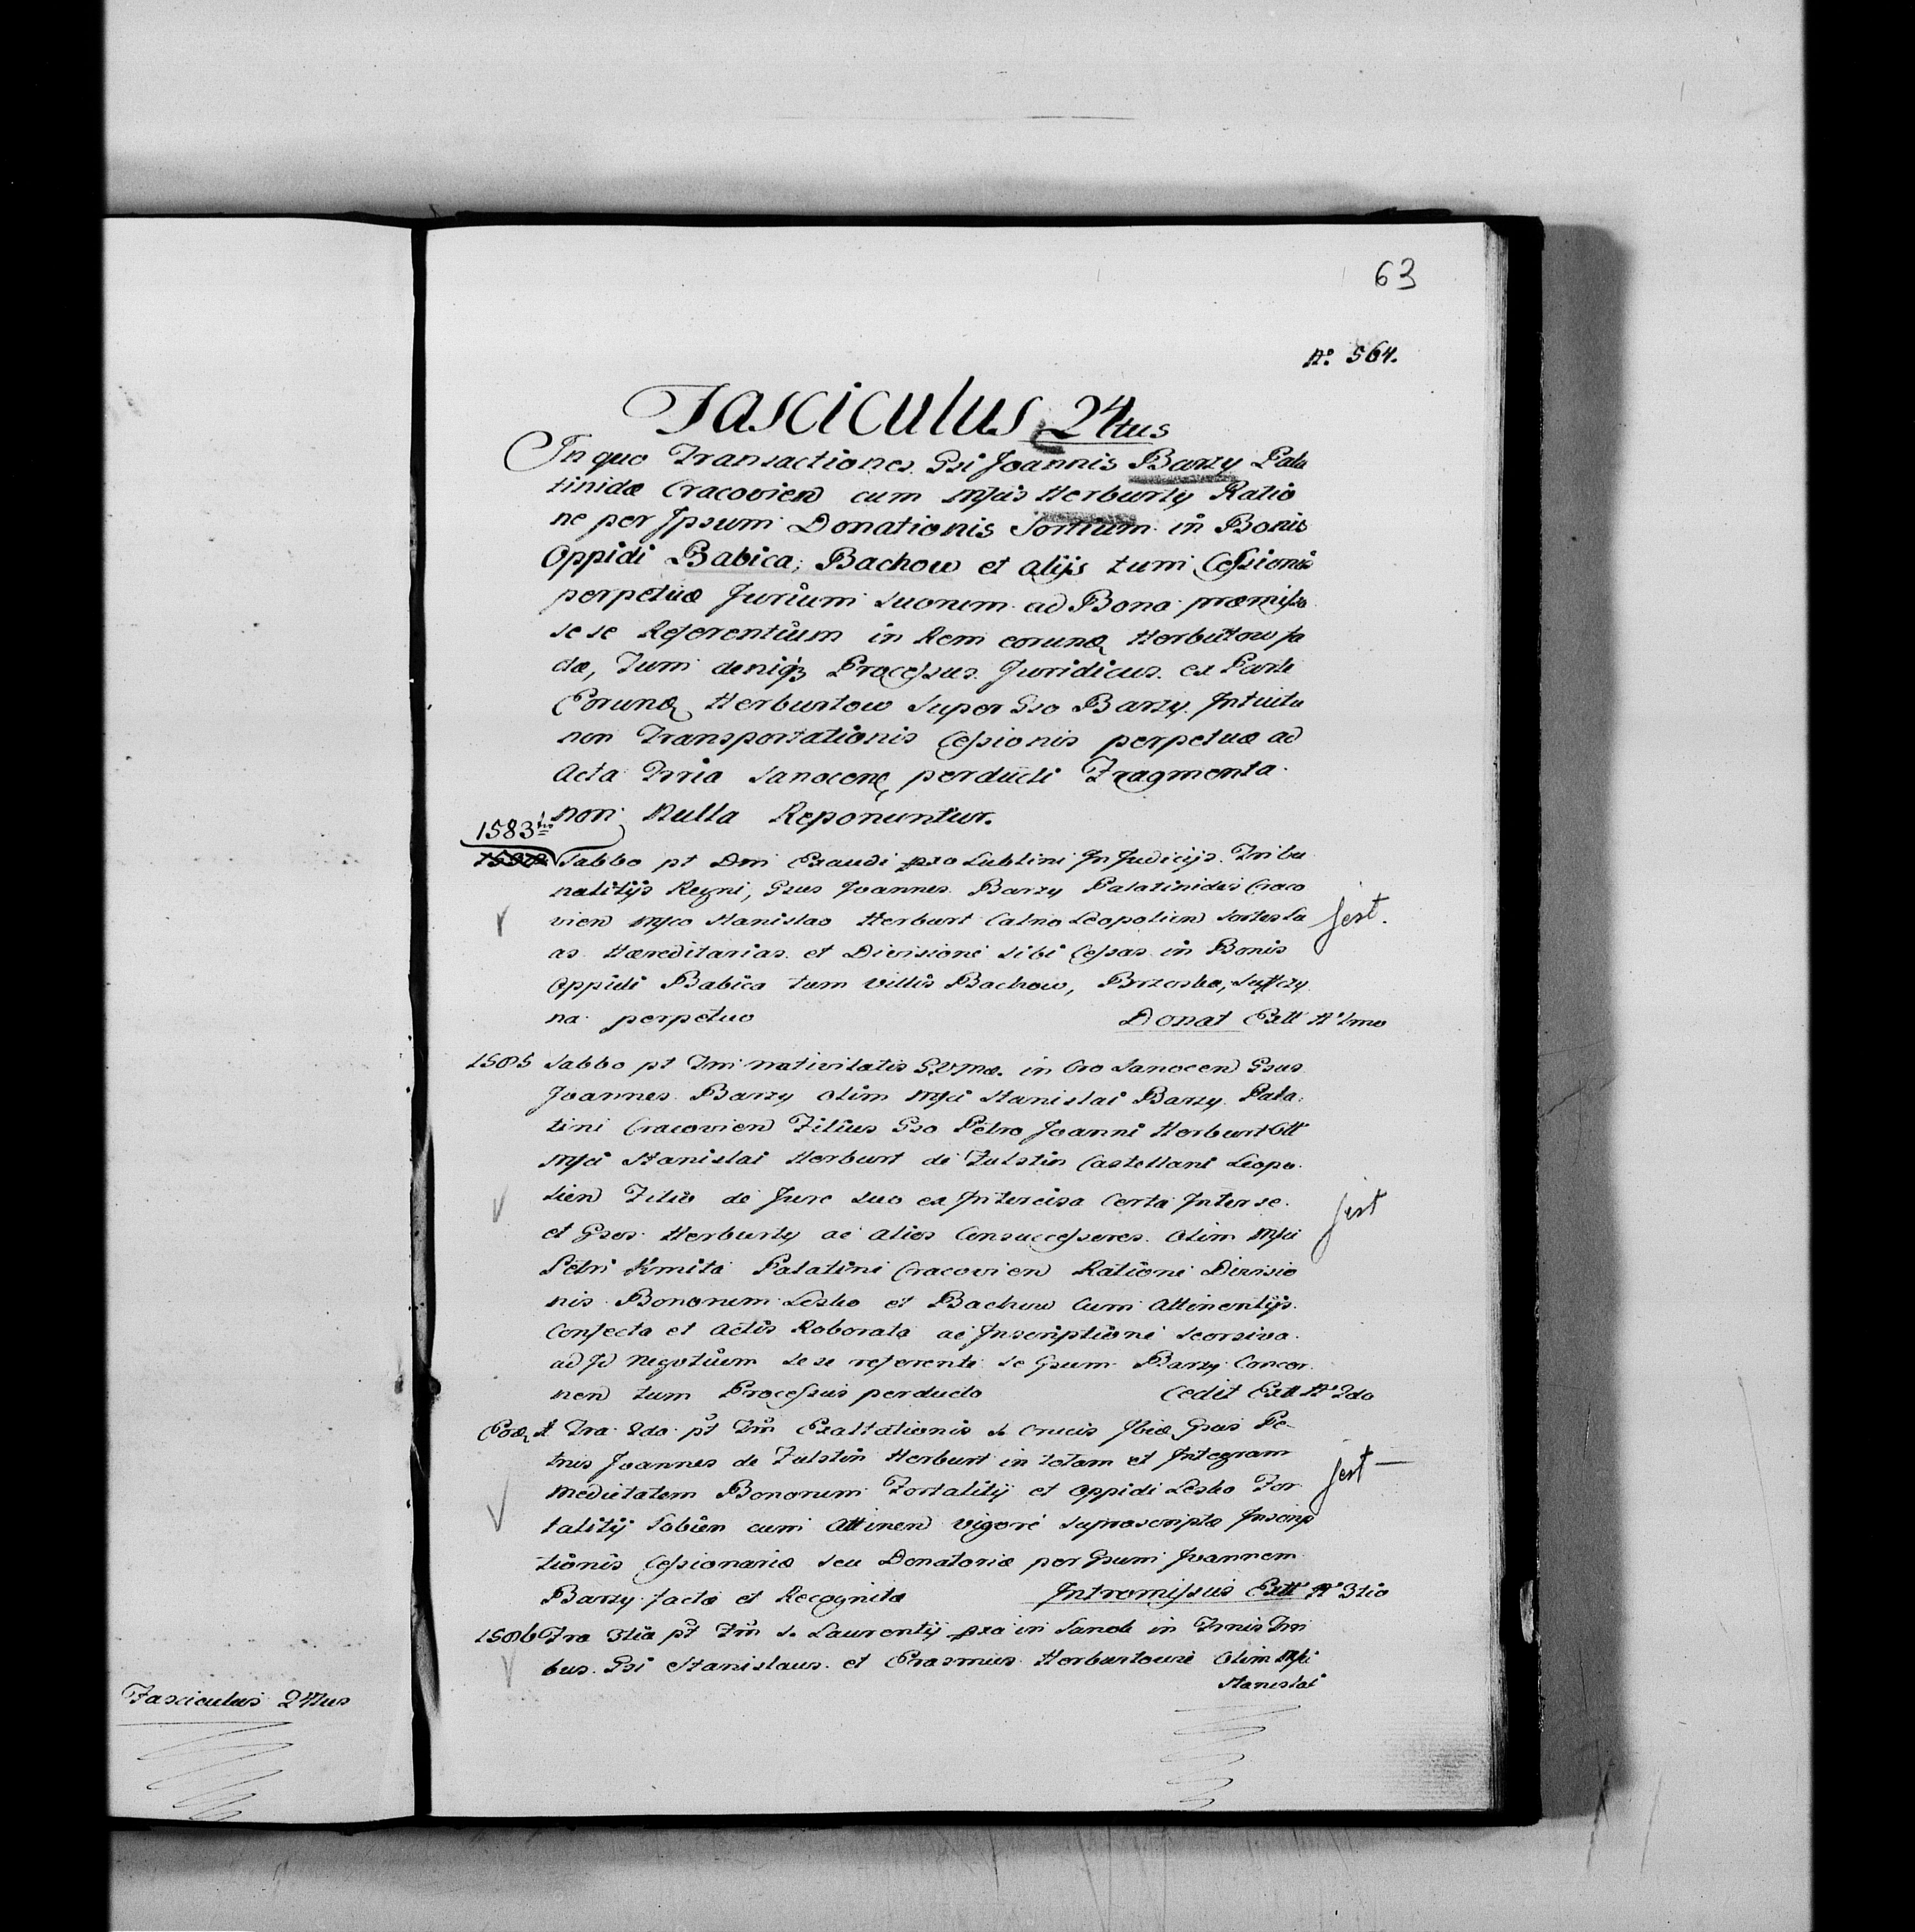 63
No. 564.
Fasciculus 24tus
In quo Transactiones Gsi Joannis Barzy Pala
tinidæ Cracovien cum Mfcis Herburty Ratio
ne per Ipsum Donationis Sortium in Bonis
Oppidi Babica, Bachow et alijs tum Cessionis
perpetuæ Jurium suorum ad Bona præmissa
se se Referentium in Rem eorund Herburtow fa
ctæ, Tum deniq Processus Juridicus ex Parte
Eorund Herburtow super Gso Barzy Intuitu
non Transportationis Cessionis perpetuæ ad
Acta Trria Sanocen perducti Fragmenta
non Nulla Reponuntur.
1583
Sabbo pt Dm Exaudi pxo Lublini In Judicijs Tribu
nalitijs Regni, Gsus Joannes Barzy Palatinides Craco
vien Mfco Stanislao Herburt Calno Leopolien Sortes Su
as Hæreditarias et Divisione sibi Cessas in Bonis
Oppidi Babica tum villis Bachow, Brzoska,
na perpetuo Donat Extt No 1mo
jest.
1585 Sabbo pt Fm Nativitatis B.V.Mæ. in Cro Sanocen Gsus
Joannes Barzy olim Mfci Stanislai Barzy Pala:
tini Cracovien Filius Gso Petro Joanni Herburt Oll
Mfci Stanislai Herburt de Fulstin Castellani Leopo
lien Filio de Jure suo ex Intercisa Certa Inter se
et Gsos Herburty ac alios Consuccessores Olim Mfci
Petri Kmita Palatini Cracovien Ratione Divisio
nis Bonorum Lesko et Bachow Cum Attinentijs
Confecta et Actis Roborata ac Inscriptione seorsiva
ad Id Negotium se se referente se Gsum Barzy Concer
nen tum Processus perducto Cedit Extt No 2do
jest
Eod A Fra 2da pt Fm Exaltationis S. Crucis Ibid Gsus Pe
trus Joannes de Fulstin Herburt in totam et Integram
Medietatem Bonorum Fortalitij et Oppidi Lesko For
talitij Sobien cum Attinen vigore suprascriptæ Inscrip
tionis Cessionariæ seu Donatoriæ per Gsum Joannem
Barzy factæ et Recognitæ Intromissus Extt No 3tio
jest
1586 Fra 3tia pt Fm S. Laurentij pxa in Sanok in Trnis Trri
bus Gsi Stanislaus et Erasmus Herburtowie Olim Mfci
Stanislai
Fasciculus 24tus